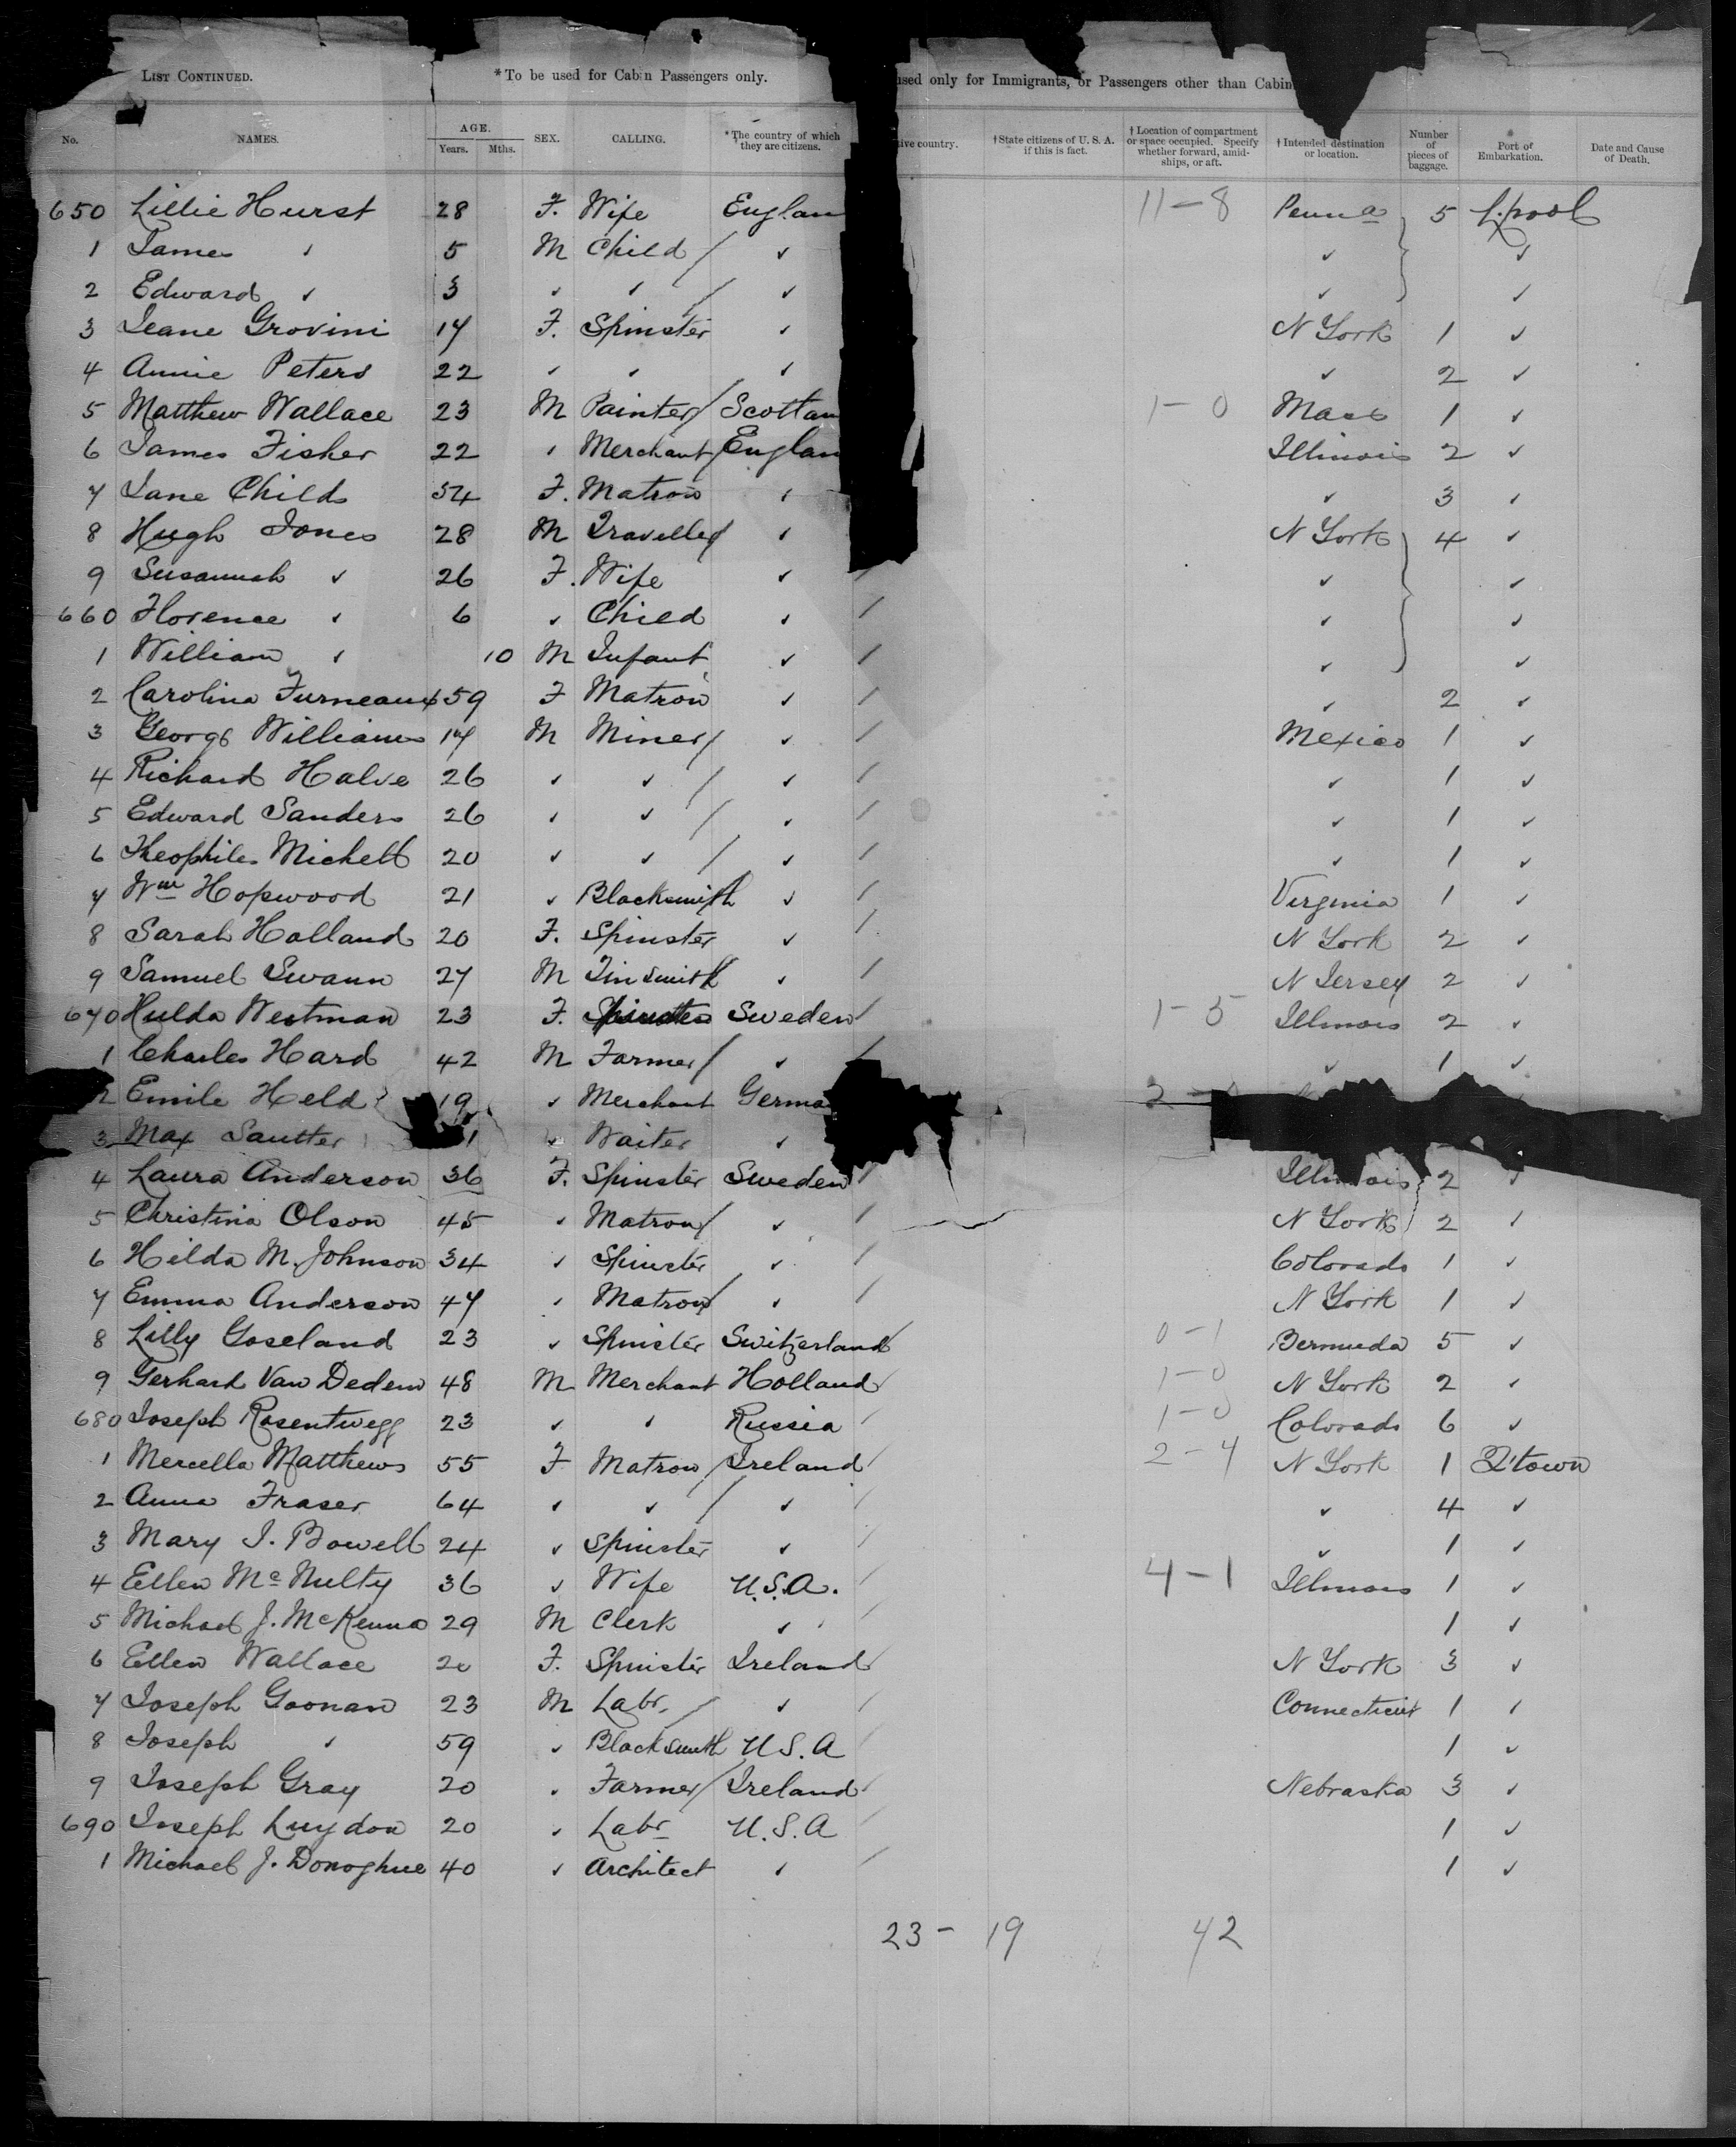 LIST CONTINUED. *To be used for Cabin Passengers only. used only for Immigrants, or Passengers other than Cabin
No. NAMES. AGE. Years. Mths. SEX. CALLING. *The country of which they are citizens. tive country. †State citizens of U. S. A. if this is fact. †Location of compartment or space occupied. Specify whether forward, amid-ships, or aft. †Intended destination or location. Number of pieces of baggage. Port of Embarkation. Date and Cause of Death.
650 Lillie Hurst 28 F. Wife Englan 11-8 Penna 5 L.pool
1 James ✓ 5 M Child / ✓ ✓ ✓
2 Edward ✓ 3 ✓ ✓ / ✓ ✓ ✓
3 Jeane Grovini 17 F. Spinster ✓ N York 1 ✓
4 Annie Peters 22 ✓ ✓ ✓ ✓ 2 ✓
5 Matthew Wallace 23 M Painter / Scotlan 1-0 Mass 1 ✓
6 James Fisher 22 ✓ Merchant / Englan Illinois 2 ✓
7 Jane Childs 54 F. Matron ✓ ✓ 3 ✓
8 Hugh Jones 28 M Traveller ✓ N York 4 ✓
9 Susannah ✓ 26 F. Wife ✓ / ✓ ✓
660 Florence ✓ 6 ✓ Child ✓ / ✓ ✓
1 William ✓ 10 M Infant ✓ / ✓ ✓
2 Carolina Furneaux 59 F Matron ✓ / ✓ 2 ✓
3 George Williams 17 M Miner / ✓ / Mexico 1 ✓
4 Richard Halve 26 ✓ ✓ / ✓ / ✓ 1 ✓
5 Edward Sanders 26 ✓ ✓ / ✓ / ✓ 1 ✓
6 Theophiles Michell 20 ✓ ✓ / ✓ / ✓ 1 ✓
7 Wm Hopwood 21 ✓ Blacksmith ✓ / Virginia 1 ✓
8 Sarah Holland 20 F. Spinster ✓ / N York 2 ✓
9 Samuel Swann 27 M Tinsmith ✓ / N Jersey 2 ✓
670 Hulda Westman 23 F. Spinster Sweden / 1-5 Illinois 2 ✓
1 Charles Hard 42 M Farmer / ✓ / ✓ 1 ✓
2 Emile Held 19 ✓ Merchant Germa 2-
3 Max Sautter 1 ✓ Waiter ✓
4 Laura Anderson 36 F. Spinster Sweden / Illinois 2 ✓
5 Christina Olson 45 ✓ Matron / ✓ / N York 2 ✓
6 Hilda M. Johnson 34 ✓ Spinster ✓ / Colorado 1 ✓
7 Emma Anderson 47 ✓ Matron / ✓ / N York 1 ✓
8 Lilly Goseland 23 ✓ Spinster Switzerland / 0-1 Bermuda 5 ✓
9 Gerhard Van Dedem 48 M Merchant Holland / 1-0 N York 2 ✓
680 Joseph Rosentwegg 23 ✓ ✓ Russia / 1-0 Colorado 6 ✓
1 Mercella Matthews 55 F Matron / Ireland / 2-4 N York 1 Q'town
2 Anna Fraser 64 ✓ ✓ / ✓ / ✓ 4 ✓
3 Mary J. Bowell 24 ✓ Spinster ✓ / ✓ 1 ✓
4 Ellen McNulty 36 ✓ Wife U.S.A. / 4-1 Illinois 1 ✓
5 Michael J. McKenna 29 M Clerk ✓ / 1 ✓
6 Ellen Wallace 20 F. Spinster Ireland / N York 3 ✓
7 Joseph Goonan 23 M Labr. / ✓ / Connecticut 1 ✓
8 Joseph ✓ 59 ✓ Blacksmith U.S.A / 1 ✓
9 Joseph Gray 20 ✓ Farmer / Ireland / Nebraska 3 ✓
690 Joseph Luydon 20 ✓ Labr U.S.A / 1 ✓
1 Michael J. Donoghue 40 ✓ Architect ✓ / 1 ✓
23 - 19 42